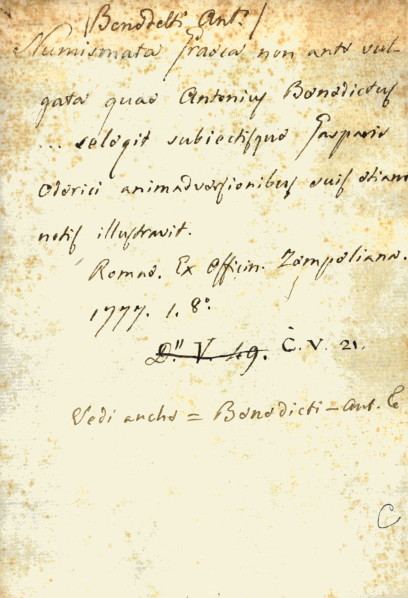 (Benedetti Ant.)
Numismata Graeca non ante vul-
gata quae Antonius Benedictus
... selegit subiectisque Gasparis
Oderici animadversionibus suis etiam
notis illustravit.
Romae. Ex Officin. Zempeliana.
1777. 1. 8°.
D." V. 49. C. V. 21.
Vedi anche = Benedicti - Ant. E
C